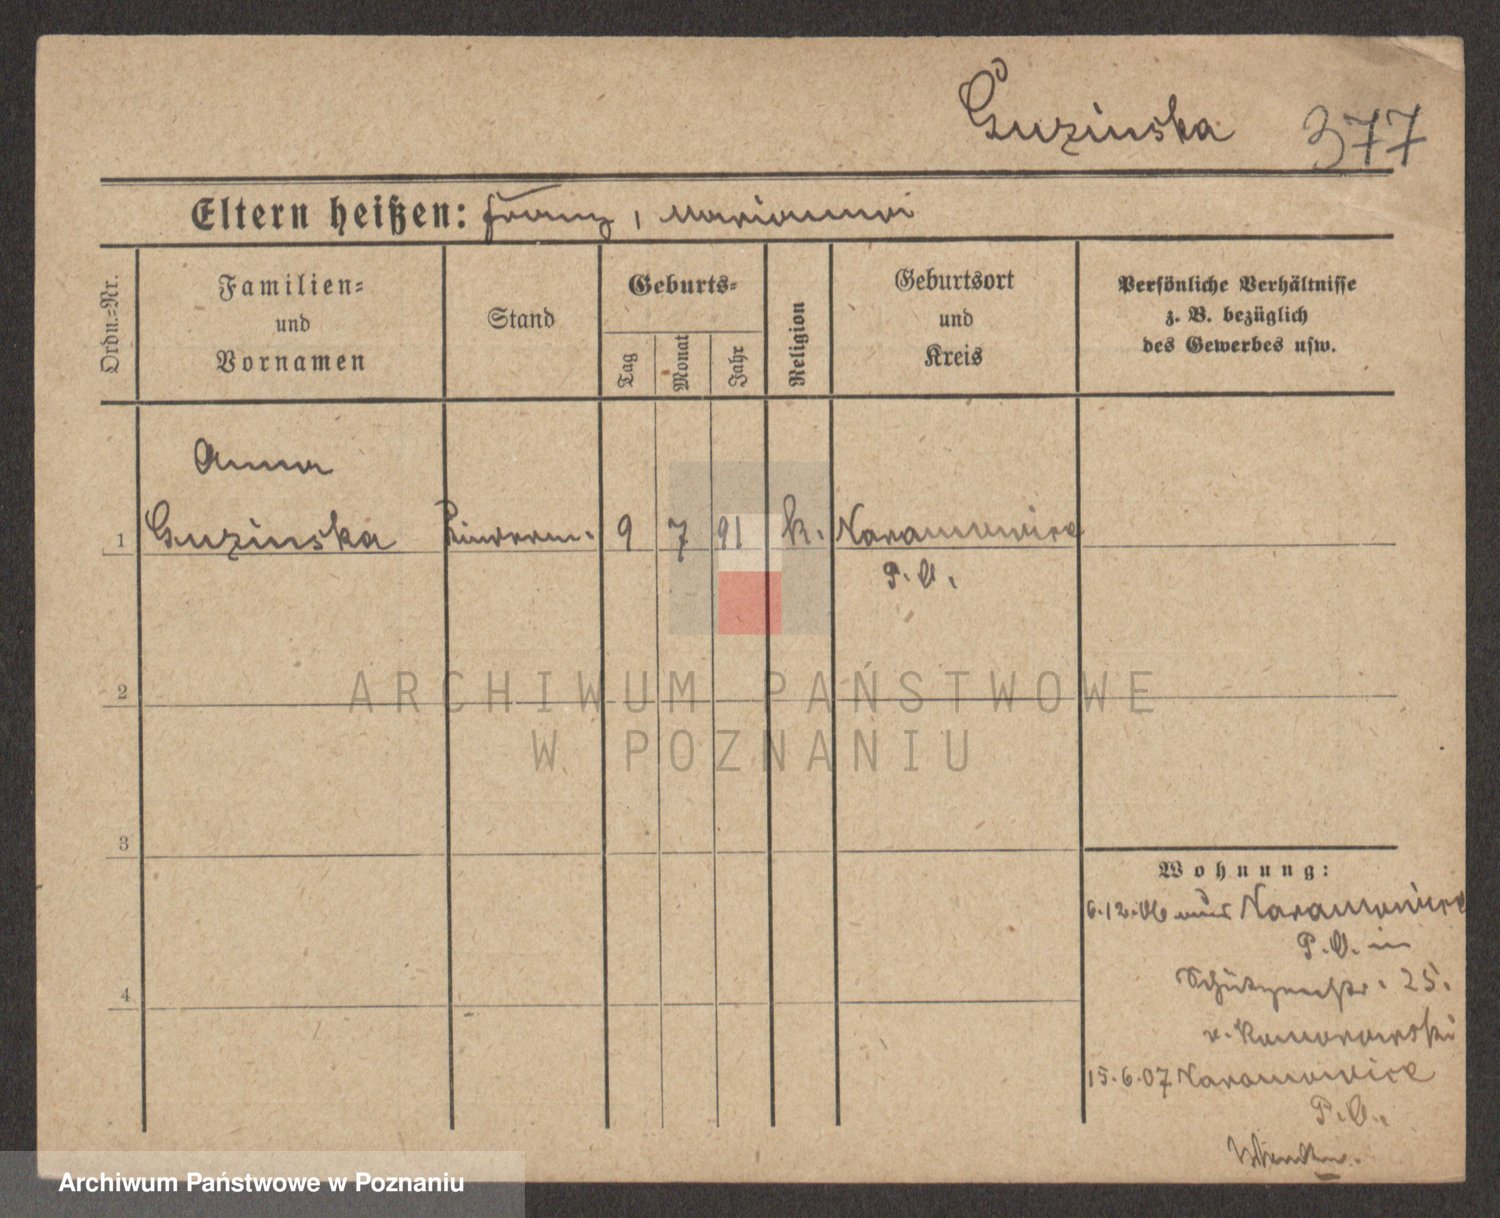 Guzinska 377
Eltern heißen: Franz, Marianna
Ordn.=Nr.
Familien=
und
Vornamen
Stand
Geburts=
Tag
Monat
Jahr
Religion
Geburtsort
und
Kreis
Persönliche Verhältnisse
z. B. bezüglich
des Gewerbes usw.
Anna
1 Guzinska 9 7 91 k. Naramowice
P. O.
2
ARCHIWUM PAŃSTWOWE
W POZNANIU
3
4
Wohnung:
6.12.06 aus Naramowice
P. O. in
Schützenstr. 25.
v. Komorowski
15.6.07 Naramowice
P. O.
Archiwum Państwowe w Poznaniu